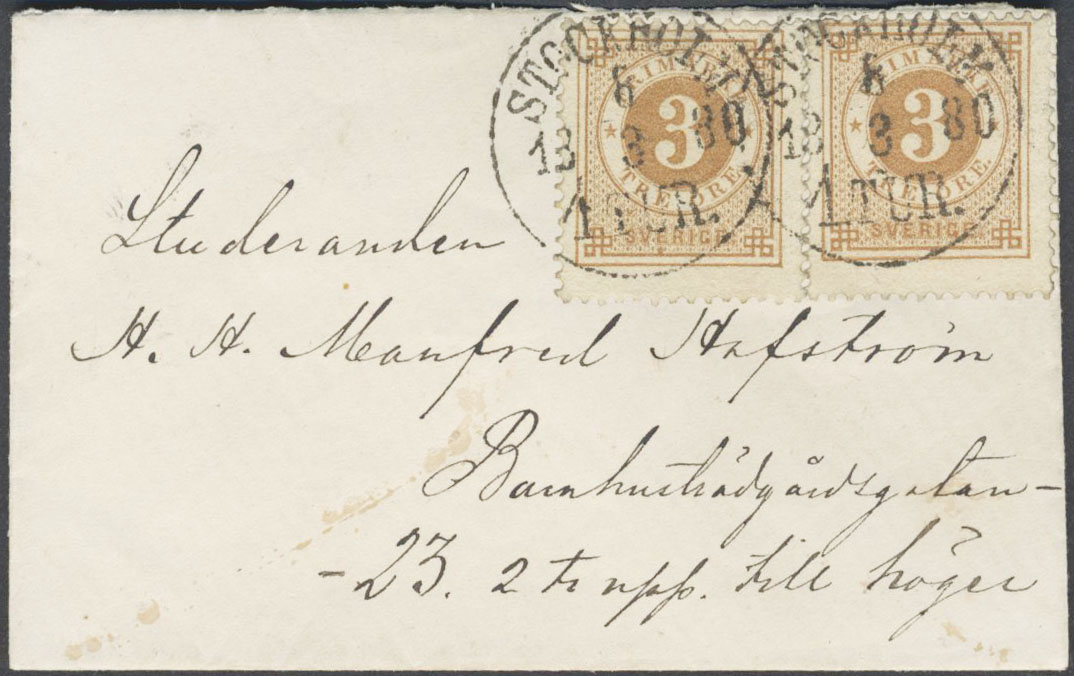 STOCKHOLM
6
18 3 80
1 TUR.
STOCKHOLM
6
18 3 80
1 TUR.
FRIMÄRKE
3
TRE ÖRE.
SVERIGE
FRIMÄRKE
3
TRE ÖRE.
SVERIGE
Studeranden
H. H. Manfred Hafström
Barnhusträdgårdsgatan-
-23. 2 trapp. till höger